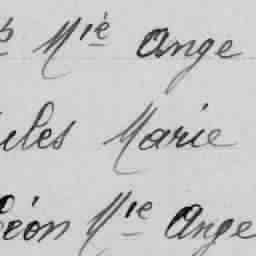 Mie Ange
Jules Marie
Léon Mie Ange